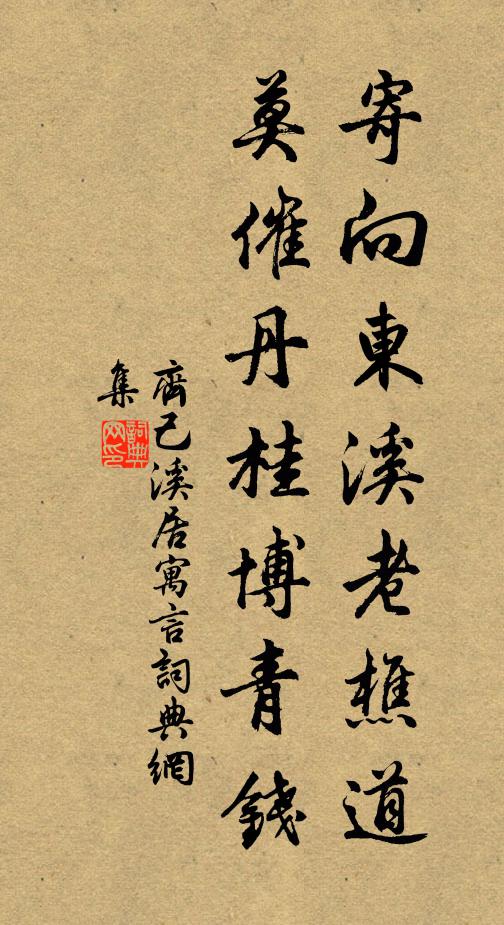 寄向東溪老樵道
莫催丹桂博青錢
齊己溪居寓言詞典網
集
詞典網印